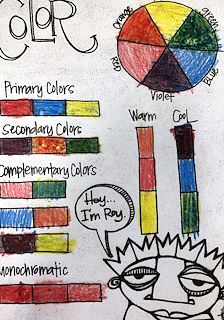 COLOR
Orange
Green
Red
Blue
Violet
Primary Colors
Secondary Colors
Complementary Colors
Monochromatic
Warm
Cool
Hey...
I'm Roy.